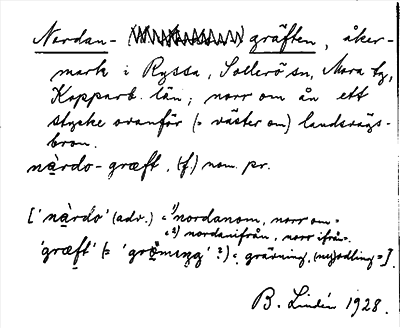 Nordan- gräften, åker-
mark i Ryssa, Sollerö sn, Mora tg,
Kopparb. län; norr om ån ett
stycke ovanför (= väster om) landsvägs-
bron.
nàrdo-græft, (f.) nom. pr.
['nàrdo' (adv.) = ¹) nordanom, norr om =
= ²) nordanifrån, norr ifrån.
'græft' (= 'grǫ̈meng' ?) = grävning, (ny)odling =].
B. Lindén 1928.